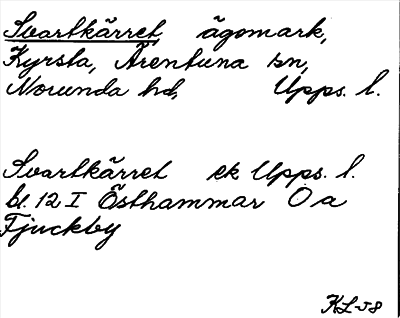 Svartkärret, ägomark,
Kyrsta, Ärentuna sn,
Norunda hd, Upps. l.
Svartkärret ek Upps. l.
bl. 12 I Östhammar O a
Fjuckby
KL-58